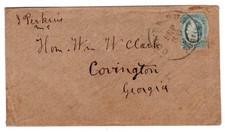 J Perkins
Hon. Wm W Clark
Covington
Georgia